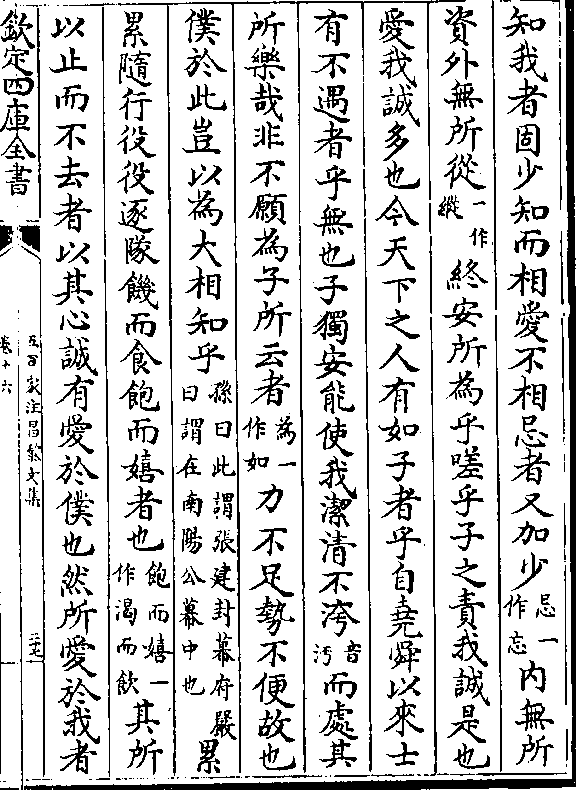 知我者固少知而相愛不相忌者又加少忌一作忘内無所
資外無所從一作縱終安所為乎嗟乎子之責我誠是也
愛我誠多也今天下之人有如子者乎自堯舜以來士
有不遇者乎無也子獨安能使我潔清不洿音汚而處其
所樂哉非不願為子所云者為一作如力不足勢不便故也
僕於此豈以為大相知乎孫曰此謂張建封幕府嚴曰謂在南陽公幕中也累
累隨行役役逐隊饑而食飽而嬉者也飽而嬉一作渴而飲其所
以止而不去者以其心誠有愛於僕也然所愛於我者
欽定四庫全書
五百家注昌黎文集
卷十六